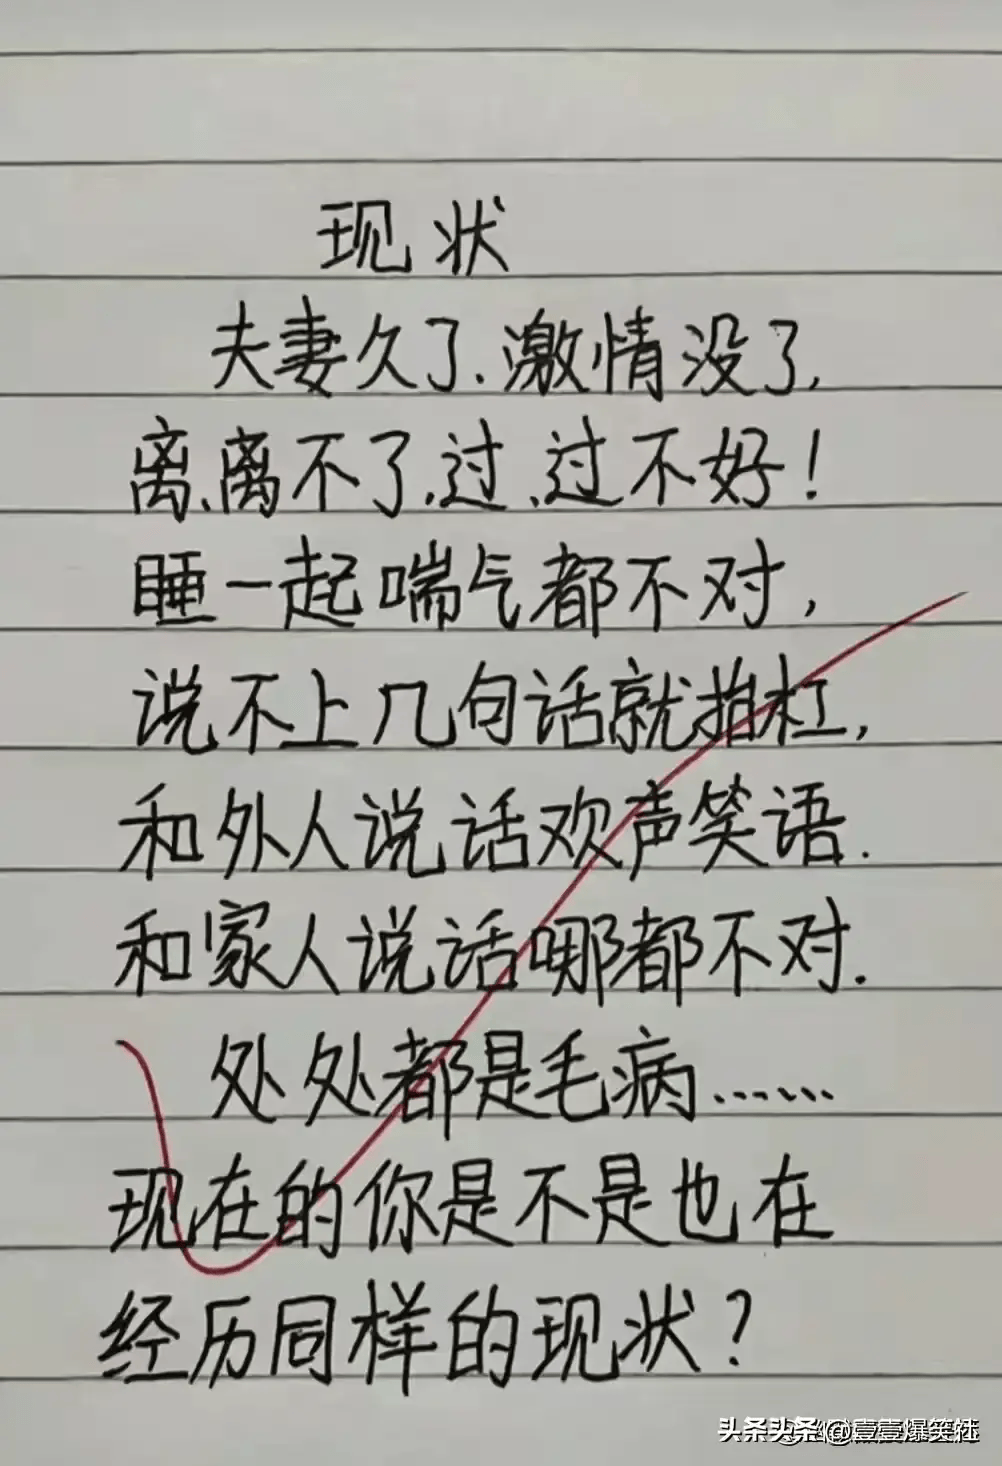 现状
夫妻久了、激情没了,
离、离不了,过、过不好!
睡一起喘气都不对,
说不上几句话就抬杠,
和外人说话欢声笑语.
和家人说话哪都不对.
处处都是毛病……
现在的你是不是也在
经历同样的现状?
头条头条@壹壹爆笑社